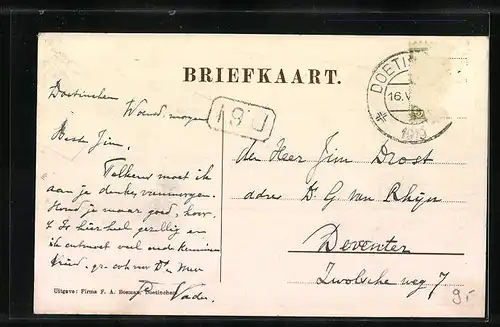 BRIEFKAART.
DOETIN
16.V
1919
Doetinchem
Woensd. morgen
Beste Jim,
Telkens moet ik
aan je denken vanmorgen.
Houd je maar goed, hoor.
't Is hier heel gezellig en
ik ontmoet veel oude kennissen
Vader.
den Heer Jim Drost
adres Dr. G van Rhijn
Deventer
Zwolsche weg 7
Uitgave: Firma F. A. Bosman, Doetinchem
9.-